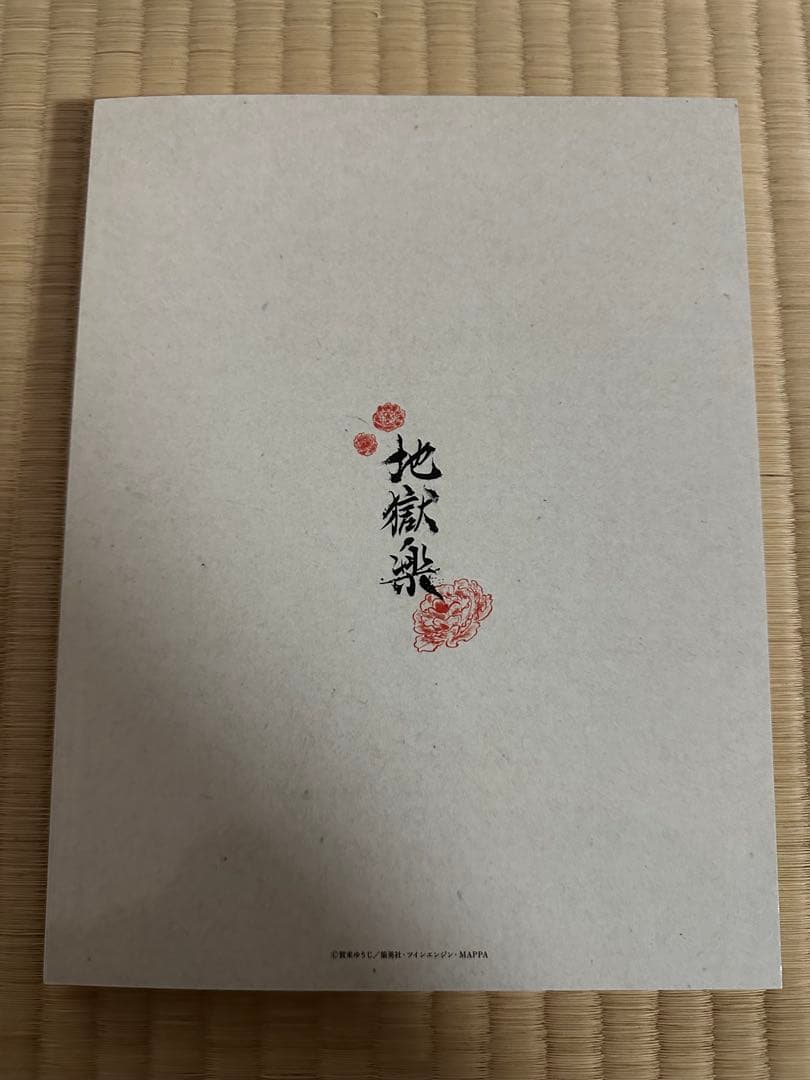 地獄楽
©賀来ゆうじ/集英社・ツインエンジン・MAPPA